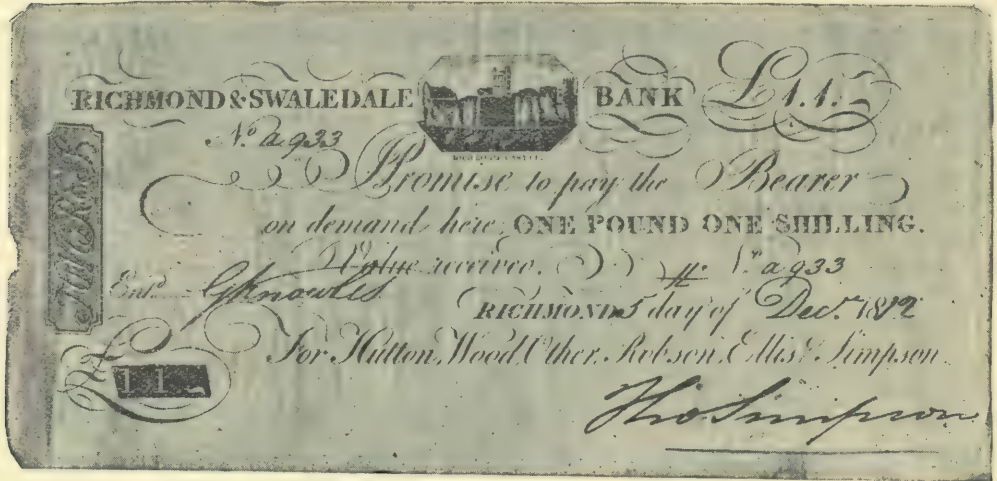 RICHMOND & SWALEDALE BANK £1.1.-
No. a 933
RICHMOND CASTLE
I Promise to pay the Bearer
on demand, here, ONE POUND ONE SHILLING.
Value received. No. a 933
Entd. GKnowles
RICHMOND 5 day of Decr. 1812
For Hutton, Wood, Other, Robson, Ellis & Simpson
£ 1 1 -
Tho Simpson